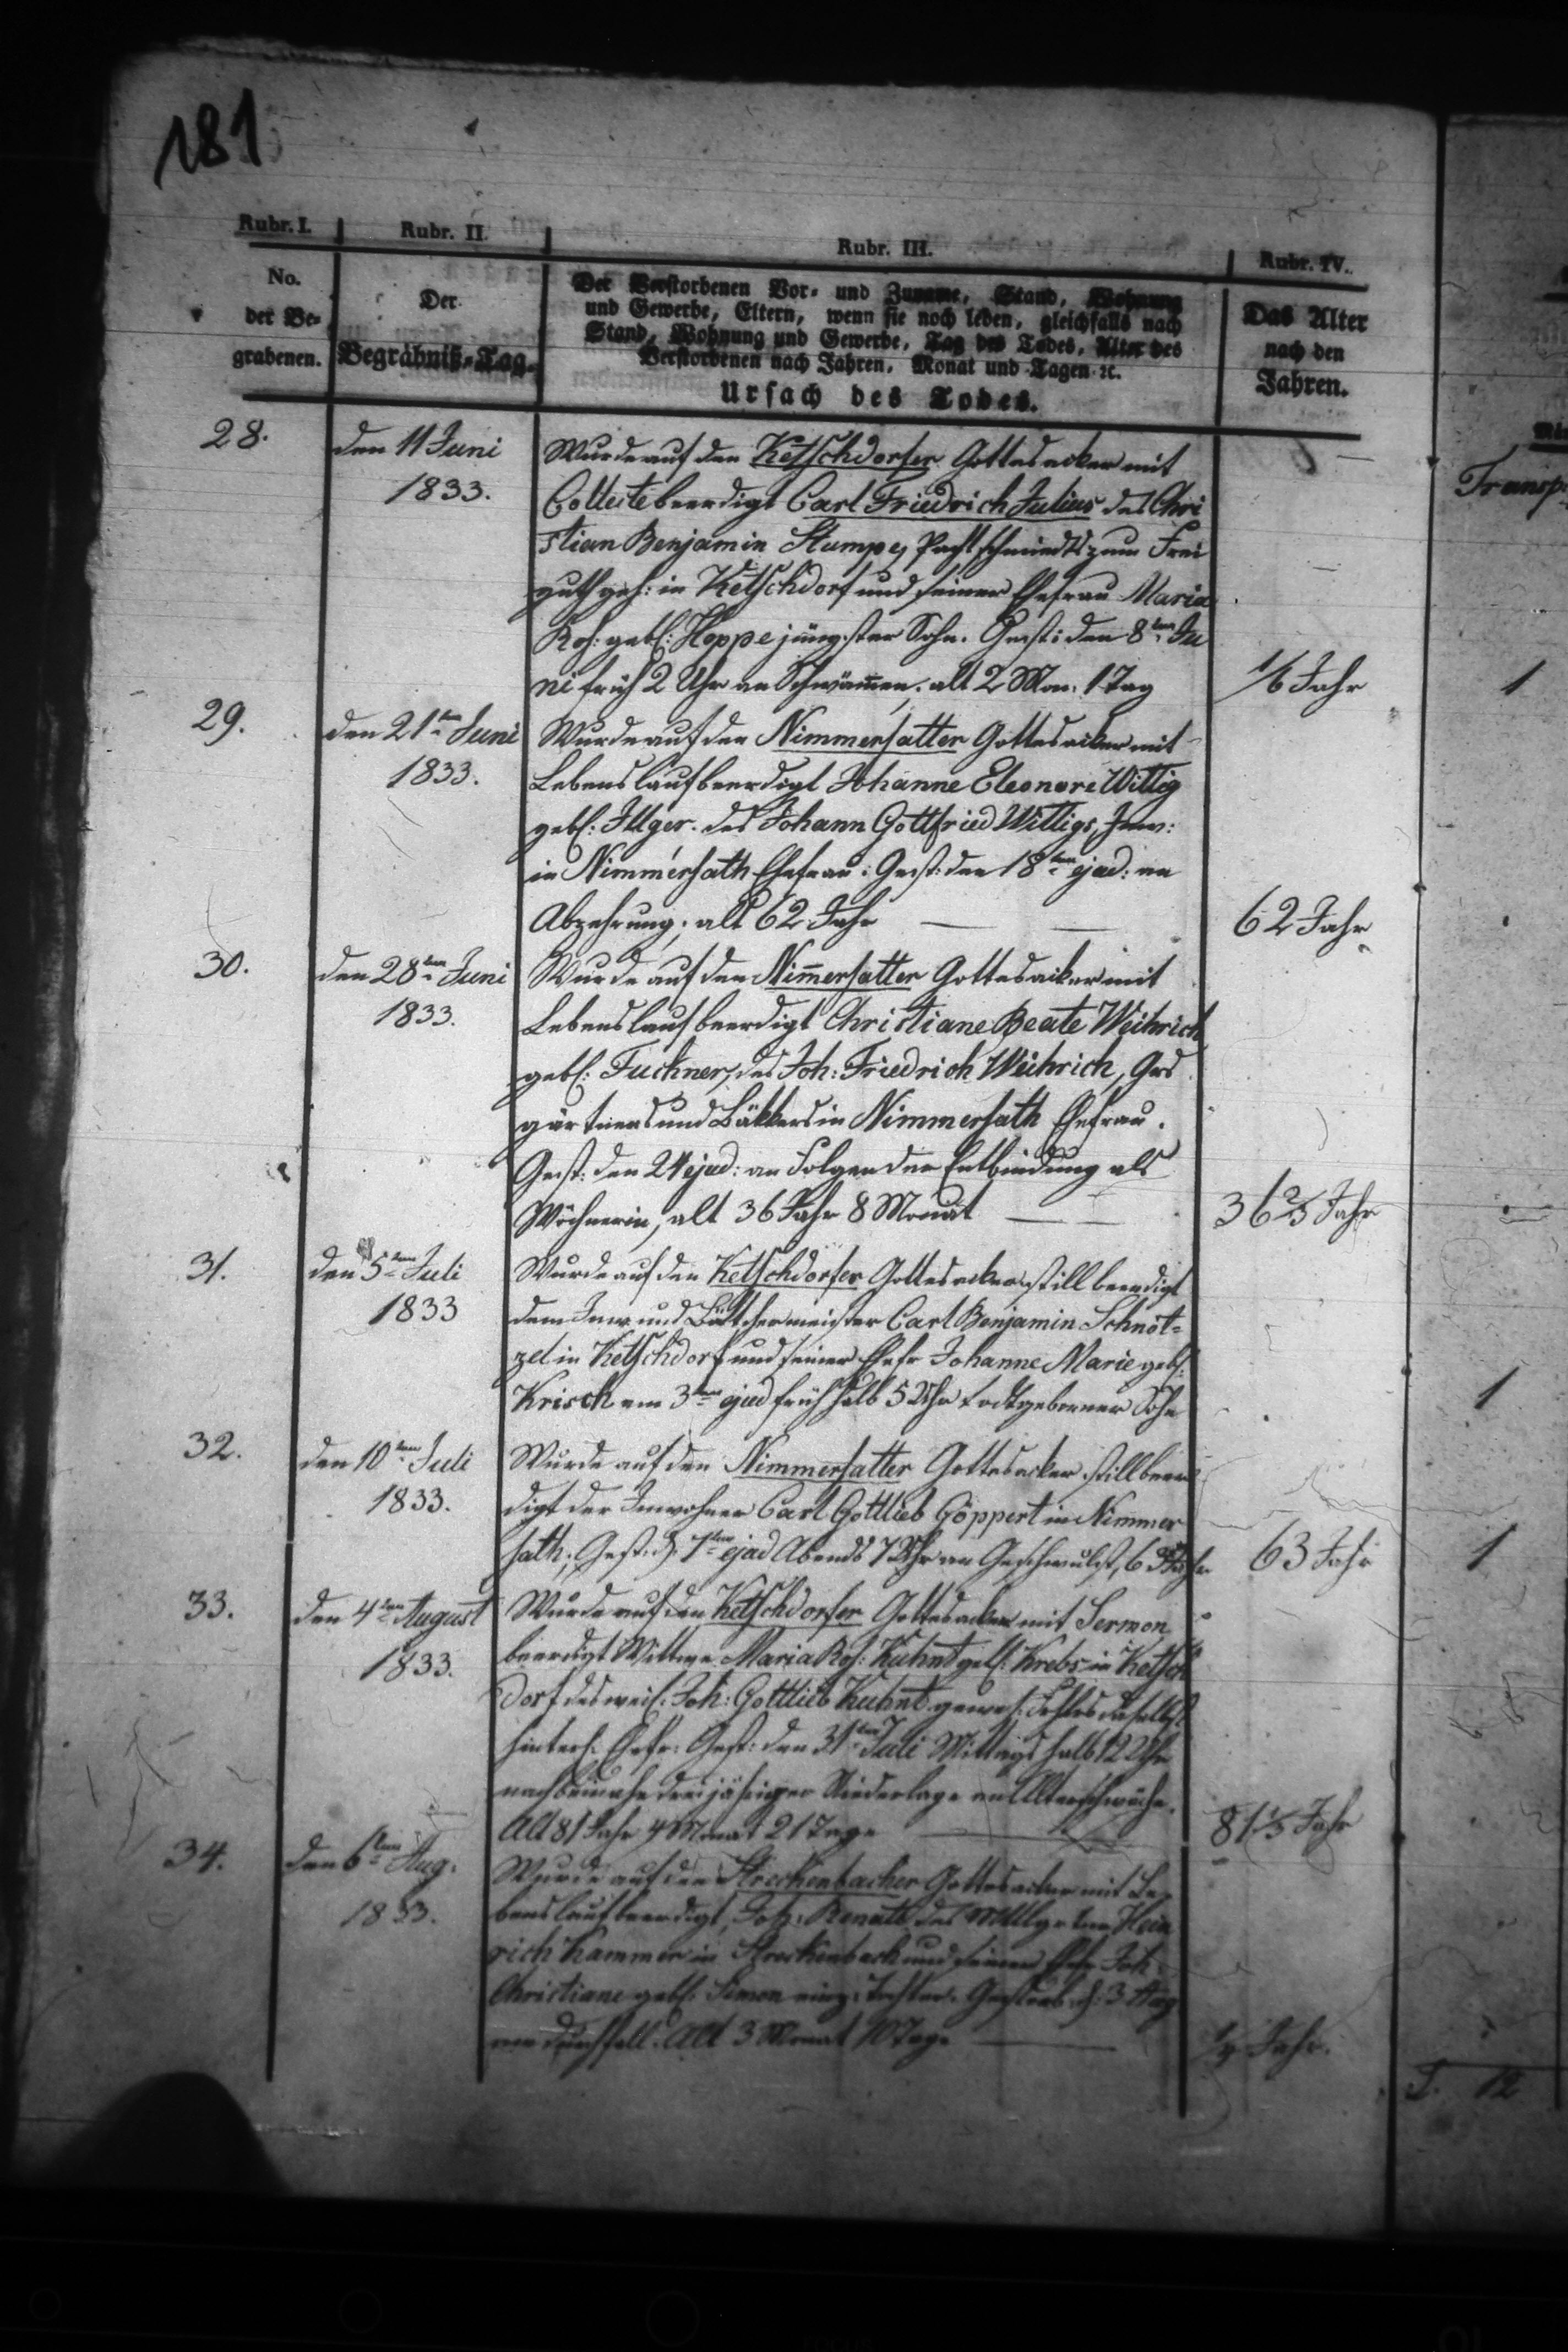 181
Rubr. I.
Rubr. II.
Rubr. III.
Rubr. IV.
No.
der Be-
grabenen.
Der
Begräbniß-Tag.
Der Verstorbenen Vor- und Zuname, Stand, Wohnung
und Gewerbe, Eltern, wenn sie noch leben, gleichfalls nach
Stand, Wohnung und Gewerbe, Tag des Todes, Alter des
Verstorbenen nach Jahren, Monat und Tagen ꝛc.
Ursach des Todes.
Das Alter
nach den
Jahren.
28.
den 11 Juni
1833.
Wurde auf den Ketschdorfer Gottesacker mit
Collecte beerdigt Carl Friedrich Julius des Chri
stian Benjamin Stumpe, Pachtschmiedts zum Frei
guth geh: in Ketschdorf und seiner Ehefrau Maria
Ros: geb: Hoppe jüngster Sohn. Gest: den 8ten Ju
ni früh 2 Uhr an Schwämmen, alt 2 Mon: 1 Tag
1/6 Jahr
1
29.
den 21ten Juni
1833.
Wurde auf den Nimmersatter Gottesacker mit
Lebenslauf beerdigt Johanne Eleonore Wittig
geb: Illger. des Johann Gottfried Wittigs, Inw:
in Nimmersath Ehefrau: Gest: den 18ten ejud: an
Abzehrung; alt 62 Jahr
62 Jahr
30.
den 28ten Juni
1833.
Wurde auf den Nimmersatter Gottesacker mit
Lebenslauf beerdigt Christiane Beate Weihrich
geb: Fuckner, des Joh: Friedrich Weihrich, Gros
gärtners und Bäkkers in Nimmersath Ehefrau.
Gest: den 24 ejud: an Folgen der Entbindung als
Wöchnerin, alt 36 Jahr 8 Monat
36 2/3 Jahr
31.
den 5ten Juli
1833
Wurde auf den Ketschdorfer Gottesacker still beerdigt
dem Inw und Böttchermeister Carl Benjamin Schnöt-
zel in Ketschdorf und seiner Ehefr Johanne Marie geb:
Krisch am 3ten ejud früh halb 5 Uhr todtgeborner Sohn
1
32.
den 10ten Juli
1833.
Wurde auf den Nimmersatter Gottesacker still beer
digt der Inwohner Carl Gottlieb Göppert in Nimmer
sath; Gest: d. 7ten ejud Abends 7 Uhr an Geschwulst, 63 Jahr
63 Jahr
1
33.
den 4ten August
1833.
Wurde auf den Ketschdorfer Gottesacker mit Sermon
beerdigt Wittwe Maria Ros: Kuhnt geb: Krebs in Ketsch
dorf des weil: Joh: Gottlieb Kuhnt gewes: daselbst
hinterl: Ehefr: Gest: den 31ten Juli Mittags halb 12 Uhr
nach beinahe dreijähriger Niederlage an Altersschwäche.
Alt 81 Jahr 4 Monat 21 Tage
81 1/3 Jahr
34.
den 6ten Aug:
1833.
Wurde auf den Streckenbacher Gottesacker mit Le
benslauf beerdigt, Joh: Renate des Hein
rich Kammer in Streckenbach und seiner Ehefr Joh:
Christiane geb: Simon einz: Tochter. Gestorb: d: 3 Aug
an Durchfall. Alt 3 Monat 10 Tage
1/4 Jahr.
Transp.
S. 12